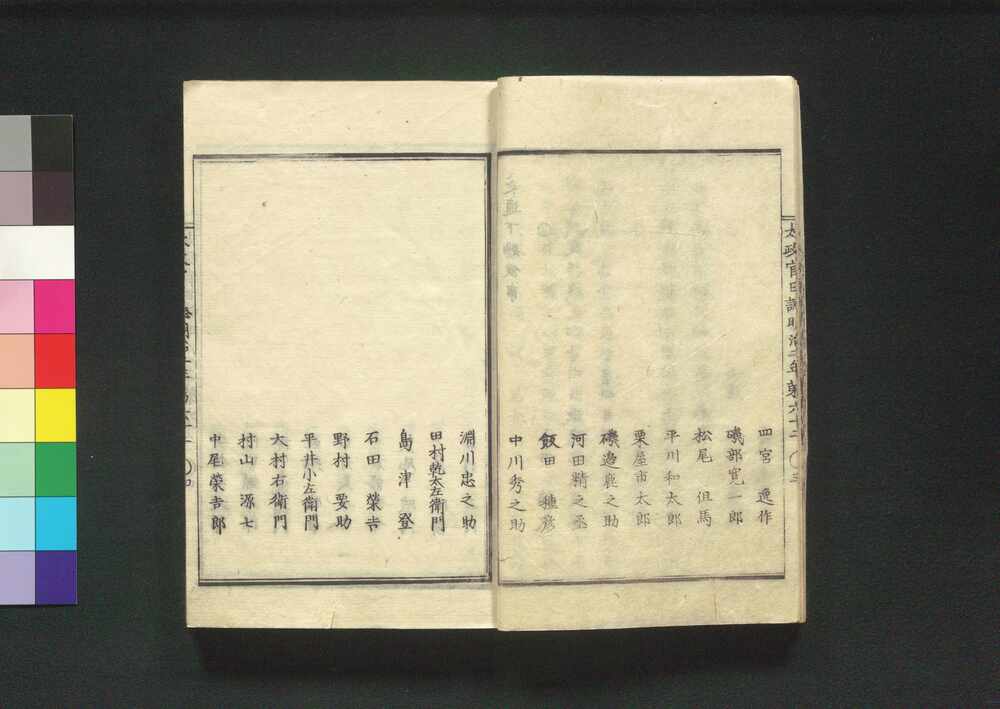 太政官日誌明治二年第六十二 〇三
四宮 逸作
磯部寛一郎
松尾 但馬
平川和太郎
栗屋市太郎
磯邉鹿之助
河田精之丞
飯田 穂彦
中川秀之助
淵川忠之助
田村乾太左衛門
島津 登
石田 榮吉
野村 要助
平井小左衛門
大村右衛門
村山 源七
中尾榮吉郎